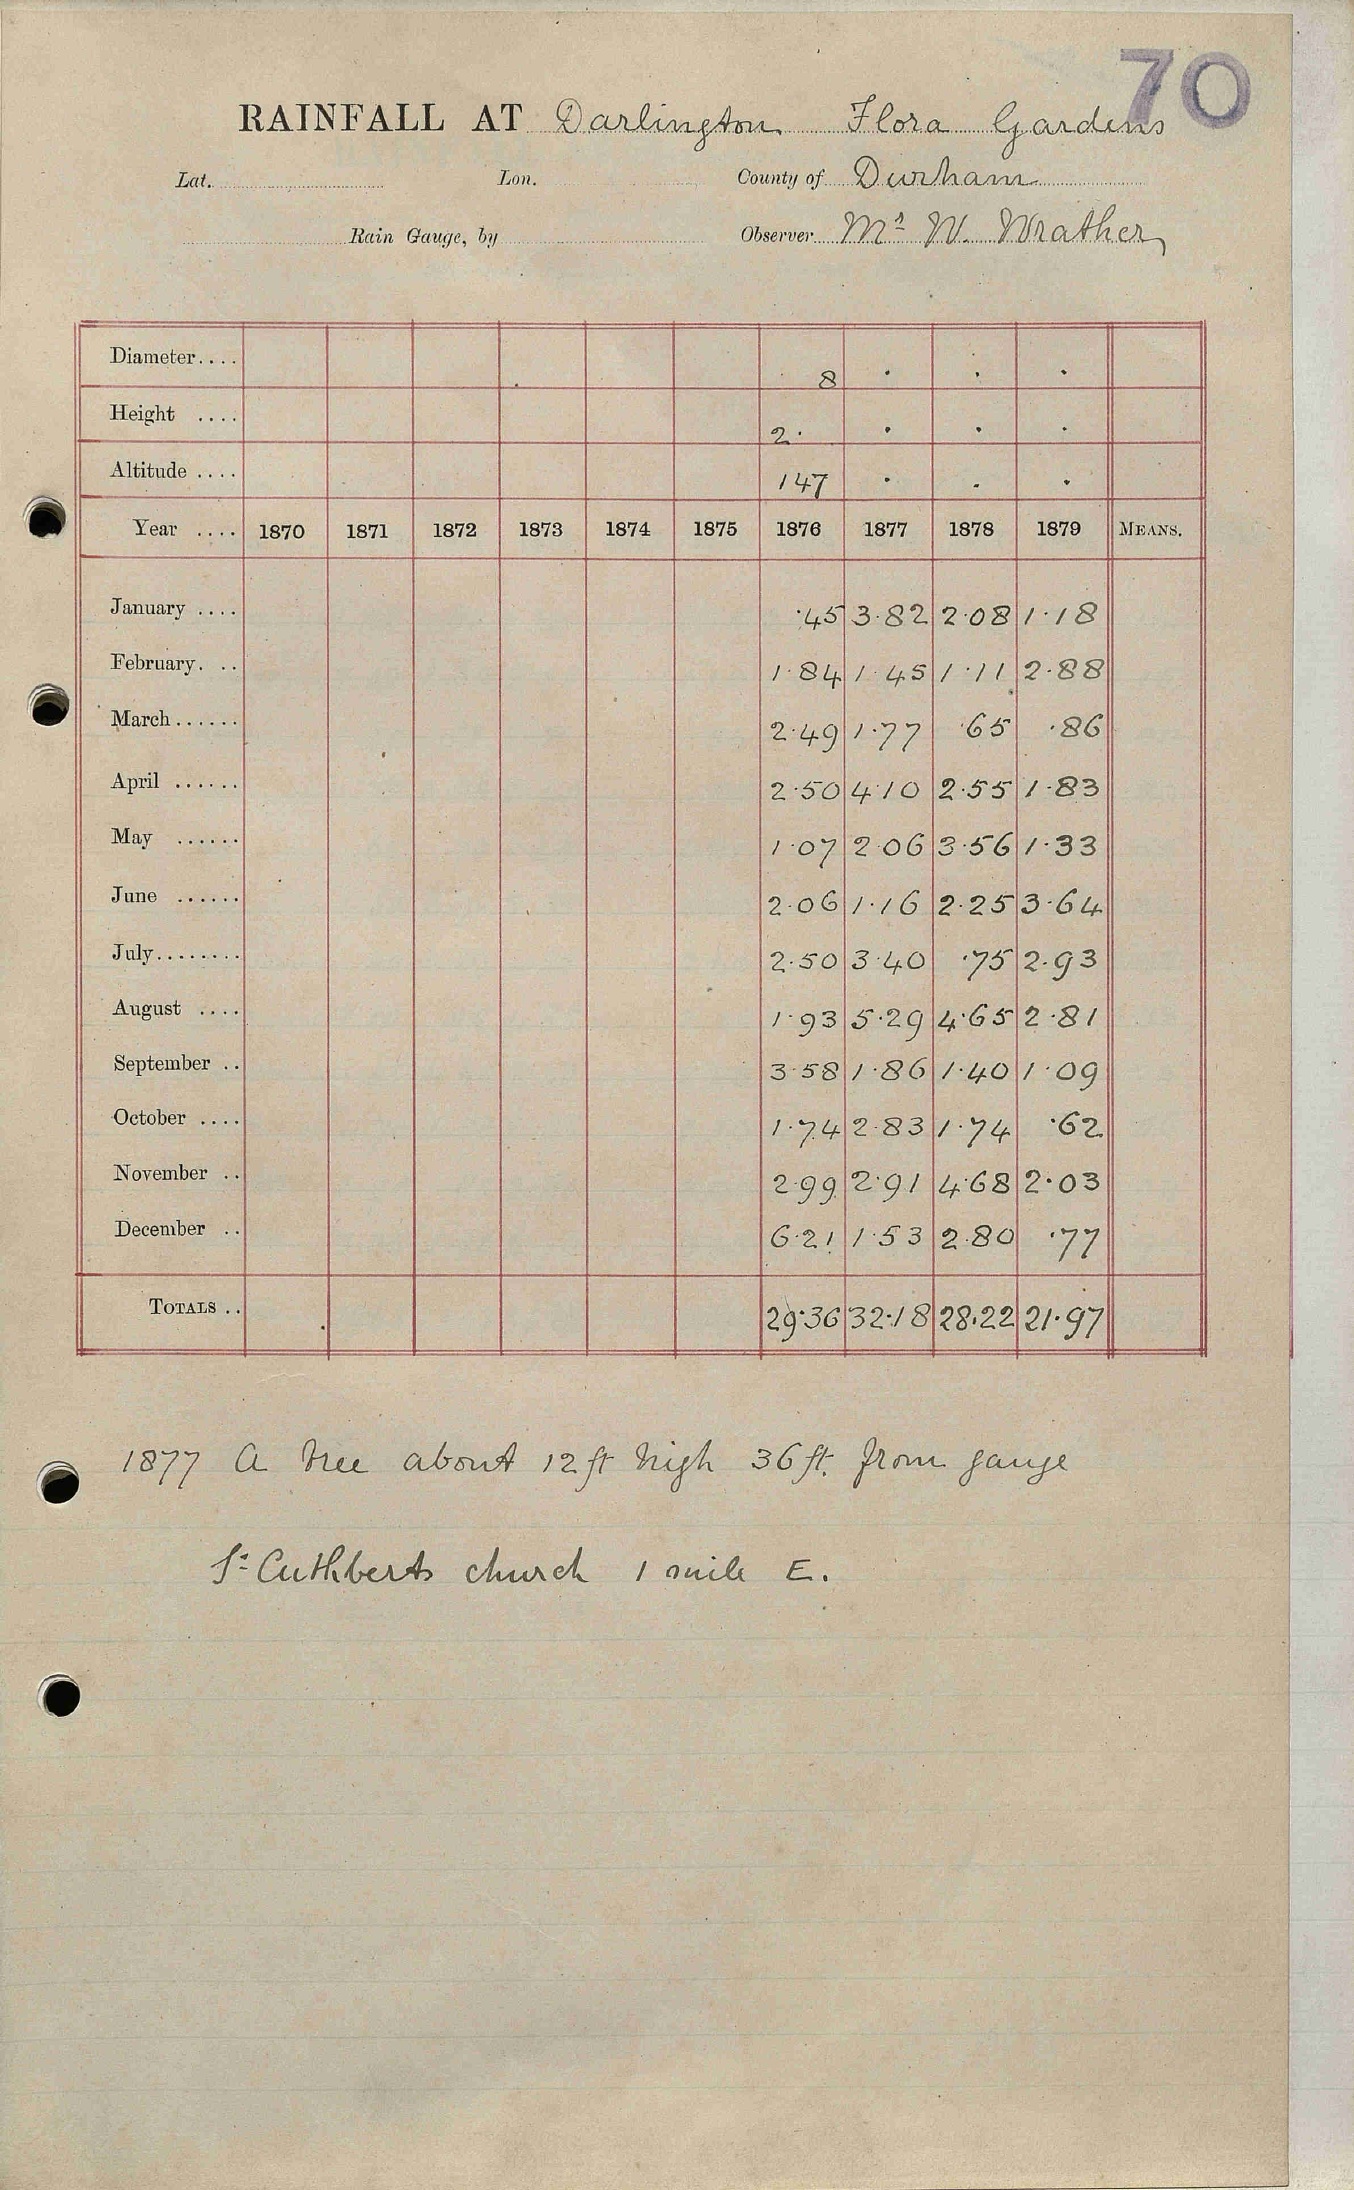 70
RAINFALL AT Darlington Flora Gardens
Lat. Lon. County of Durham
Rain Gauge, by Observer Mr W. Wrather
Diameter.... 8 · · ·
Height .... 2· · · ·
Altitude .... 147 · · ·
Year .... 1870 1871 1872 1873 1874 1875 1876 1877 1878 1879 MEANS.
January .... ·45 3·82 2·08 1·18
February. .. 1·84 1·45 1·11 2·88
March...... 2·49 1·77 ·65 ·86
April ...... 2·50 4·10 2·55 1·83
May ...... 1·07 2·06 3·56 1·33
June ...... 2·06 1·16 2·25 3·64
July........ 2·50 3·40 ·75 2·93
August .... 1·93 5·29 4·65 2·81
September .. 3·58 1·86 1·40 1·09
October .... 1·74 2·83 1·74 ·62
November .. 2·99 2·91 4·68 2·03
December .. 6·21 1·53 2·80 ·77
TOTALS .. 29·36 32·18 28·22 21·97
1877 A tree about 12 ft high 36 ft. from gauge
St Cuthberts church 1 mile E.